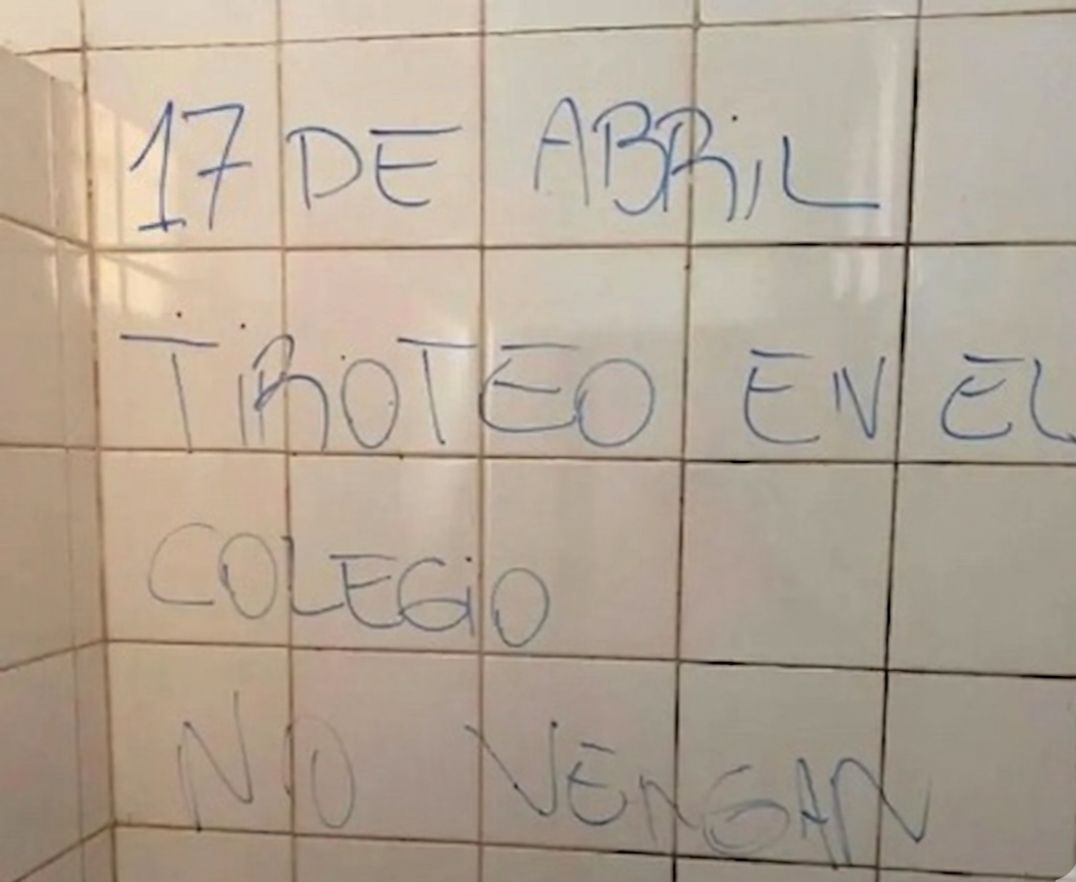 17 DE ABRIL
TIROTEO EN EL
COLEGIO
NO VENGAN